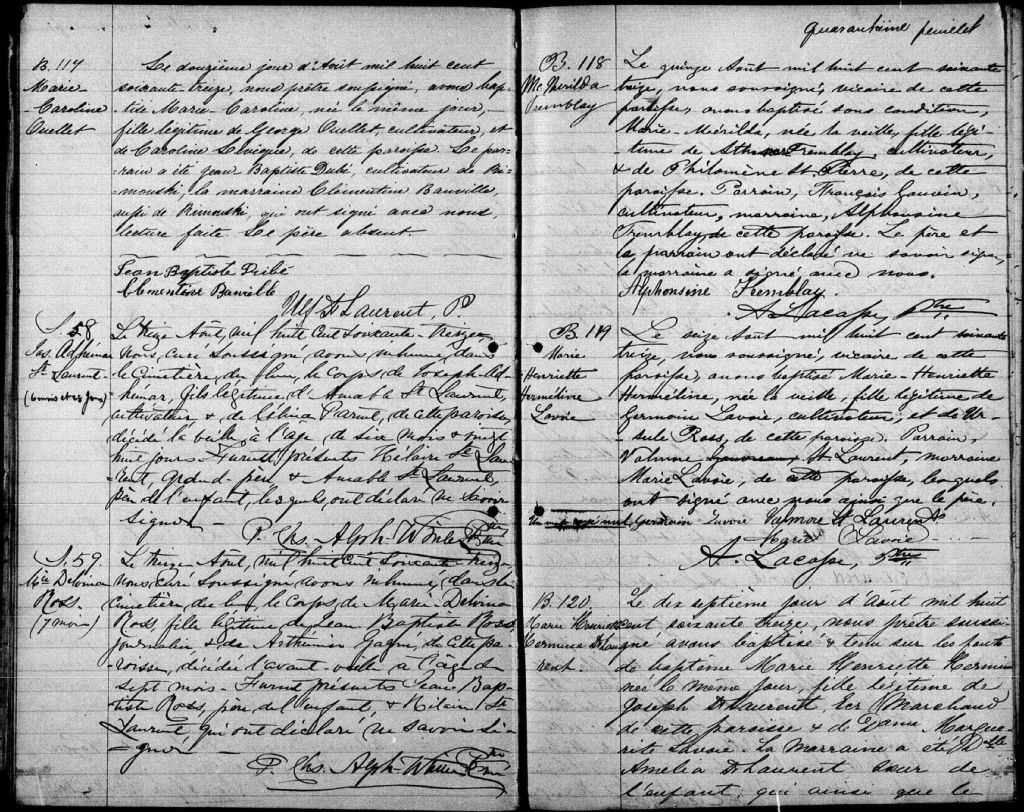 B. 117
Marie
Caroline
Ouellet
Le douzième jour d'Août mil huit cent
soixante treize, nous prêtre soussigné, avons bap-
-tisé Marie Caroline, née le même jour,
fille légitime de George Ouellet, cultivateur, et
de Caroline Lévêque, de cette paroisse. Le par-
-rain a été Jean Baptiste Dubé, cultivateur de Ri-
-mouski, la marraine Clémentine Banville,
aussi de Rimouski, qui ont signé avec nous,
lecture faite. Le père absent
Jean Baptiste Dubé
Clementine Banville
St Laurent, P.
S. 58
Jos. Adhémar
St Laurent
(6 mois et 28 jours)
Le treize Août, mil huit Cent Soixante-treize,
Nous, curé Soussigné avons inhumé, dans
le Cimetière du lieu, le Corps de Joseph Ad-
hémar, fils légitime d'Amable St Laurent,
cultivateur & de Célina Parent, de cette paroisse,
décédé la veille à l'âge de six mois & vingt
huit jours. Furent présents Hilaire St Lau-
rent, grand-père & Amable St Laurent,
père de l'enfant, lesquels ont déclaré ne savoir
signer
P. Chs. Alph. Winter Ptre
S. 59.
Mie Delvina
Ross.
(7 mois)
Le treize Août, mil huit Cent Soixante treize,
nous, curé Soussigné avons inhumé, dans le
cimetière du lieu, le Corps de Marie Delvina
Ross, fille légitime de Jean Baptiste Ross,
journalier & de Arthémise Gagné, de cette pa-
-roisse, décédée l'avant-veille à l'âge de
sept mois. Furent présents Jean Bap-
tiste Ross, père de l'enfant, & Hilaire St
Laurent, qui ont déclaré ne savoir si-
-gner
P. Chs. Alph. Winter Ptre
quarantième feuillet
B. 118
Tremblay
Le quinze Août mil huit cent soixante
treize, nous soussigné, vicaire de cette
paroisse, avons baptisé sous condition,
Marie-Mérilda, née la veille, fille légi-
-time de Tremblay, cultivateur,
& de Philomène St Pierre, de cette
paroisse. Parrain, François Gauvin,
cultivateur, marraine, Alphonsine
Tremblay de cette paroisse. Le père et
le parrain ont déclaré ne savoir signer,
la marraine a signé avec nous.
Alphonsine Tremblay.
A. Lacasse, Ptre
B. 119
Marie
Henriette
Herméline
Lavoie
Le seize Août mil huit cent soixante
treize, nous soussigné, vicaire de cette
paroisse, avons baptisé Marie-Henriette
Herméline, née la veille, fille légitime de
Germain Lavoie, cultivateur, et de Ur-
-sule Ross, de cette paroisse. Parrain,
Valmore St Laurent, marraine
Marie Lavoie, de cette paroisse, lesquels
ont signé avec nous ainsi que le père.
Germain Lavoie Valmore St Laurent
Marie Lavoie
A. Lacasse, Ptre
B. 120
Marie Henriette
St Lau-
rent.
Le dix septième jour d'Août mil huit
cent soixante treize, nous prêtre soussi-
gné avons baptisé & tenu sur les fonts
de baptême Marie Henriette
née le même jour, fille légitime de
Joseph St Laurent, Marchand
de cette paroisse & de Dame Margue-
rite Lavoie. La Marraine a été Dlle
Amelia St Laurent sœur de
l'enfant, qui ainsi que le